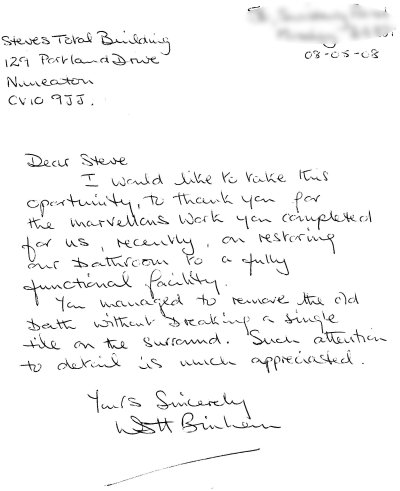 Steves Total Building
129 Portland Drive
Nuneaton
CV10 9JJ.
08-05-08
Dear Steve
I would like to take this
oportunity, to thank you for
the marvellous work you completed
for us, recently, on restoring
our Bathroom to a fully
functional facility.
You managed to remove the old
Bath without Breaking a single
tile on the surround. Such attention
to detail is much appreciated.
Yours Sincerely